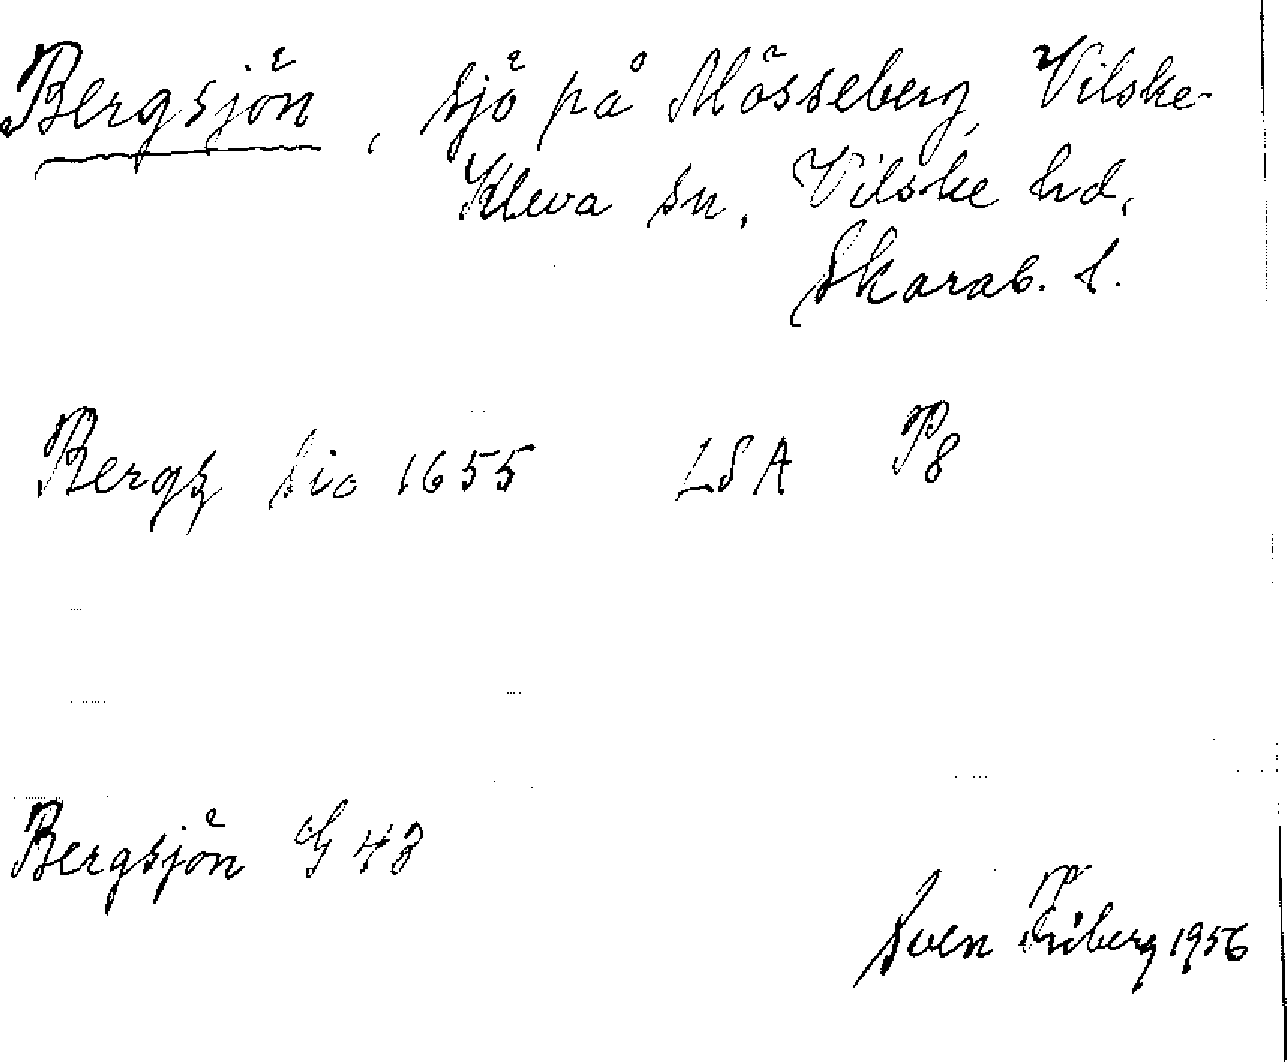 Bergsjön, sjö på Mösseberg, Vilske-
Kleva sn, Vilske hd,
Skarab. l.
Bergz Sio 1655 LSA P8
Bergsjön G 43
Sven Friberg 1956